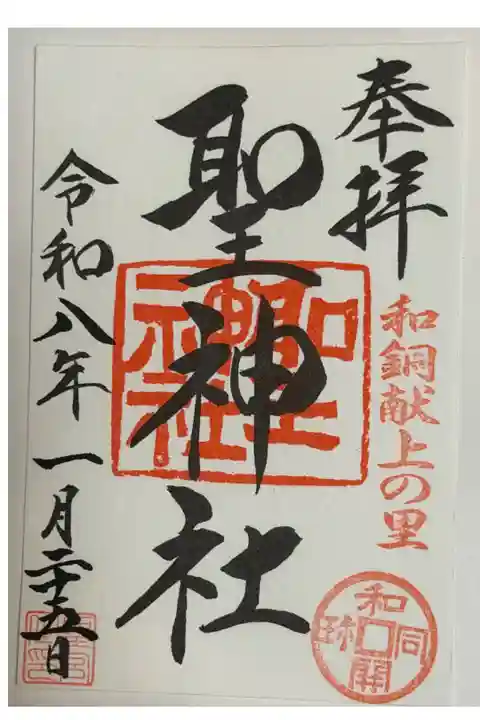 奉拝
和銅献上の里
和同開珎
聖神社
聖神社
令和八年一月二十五日